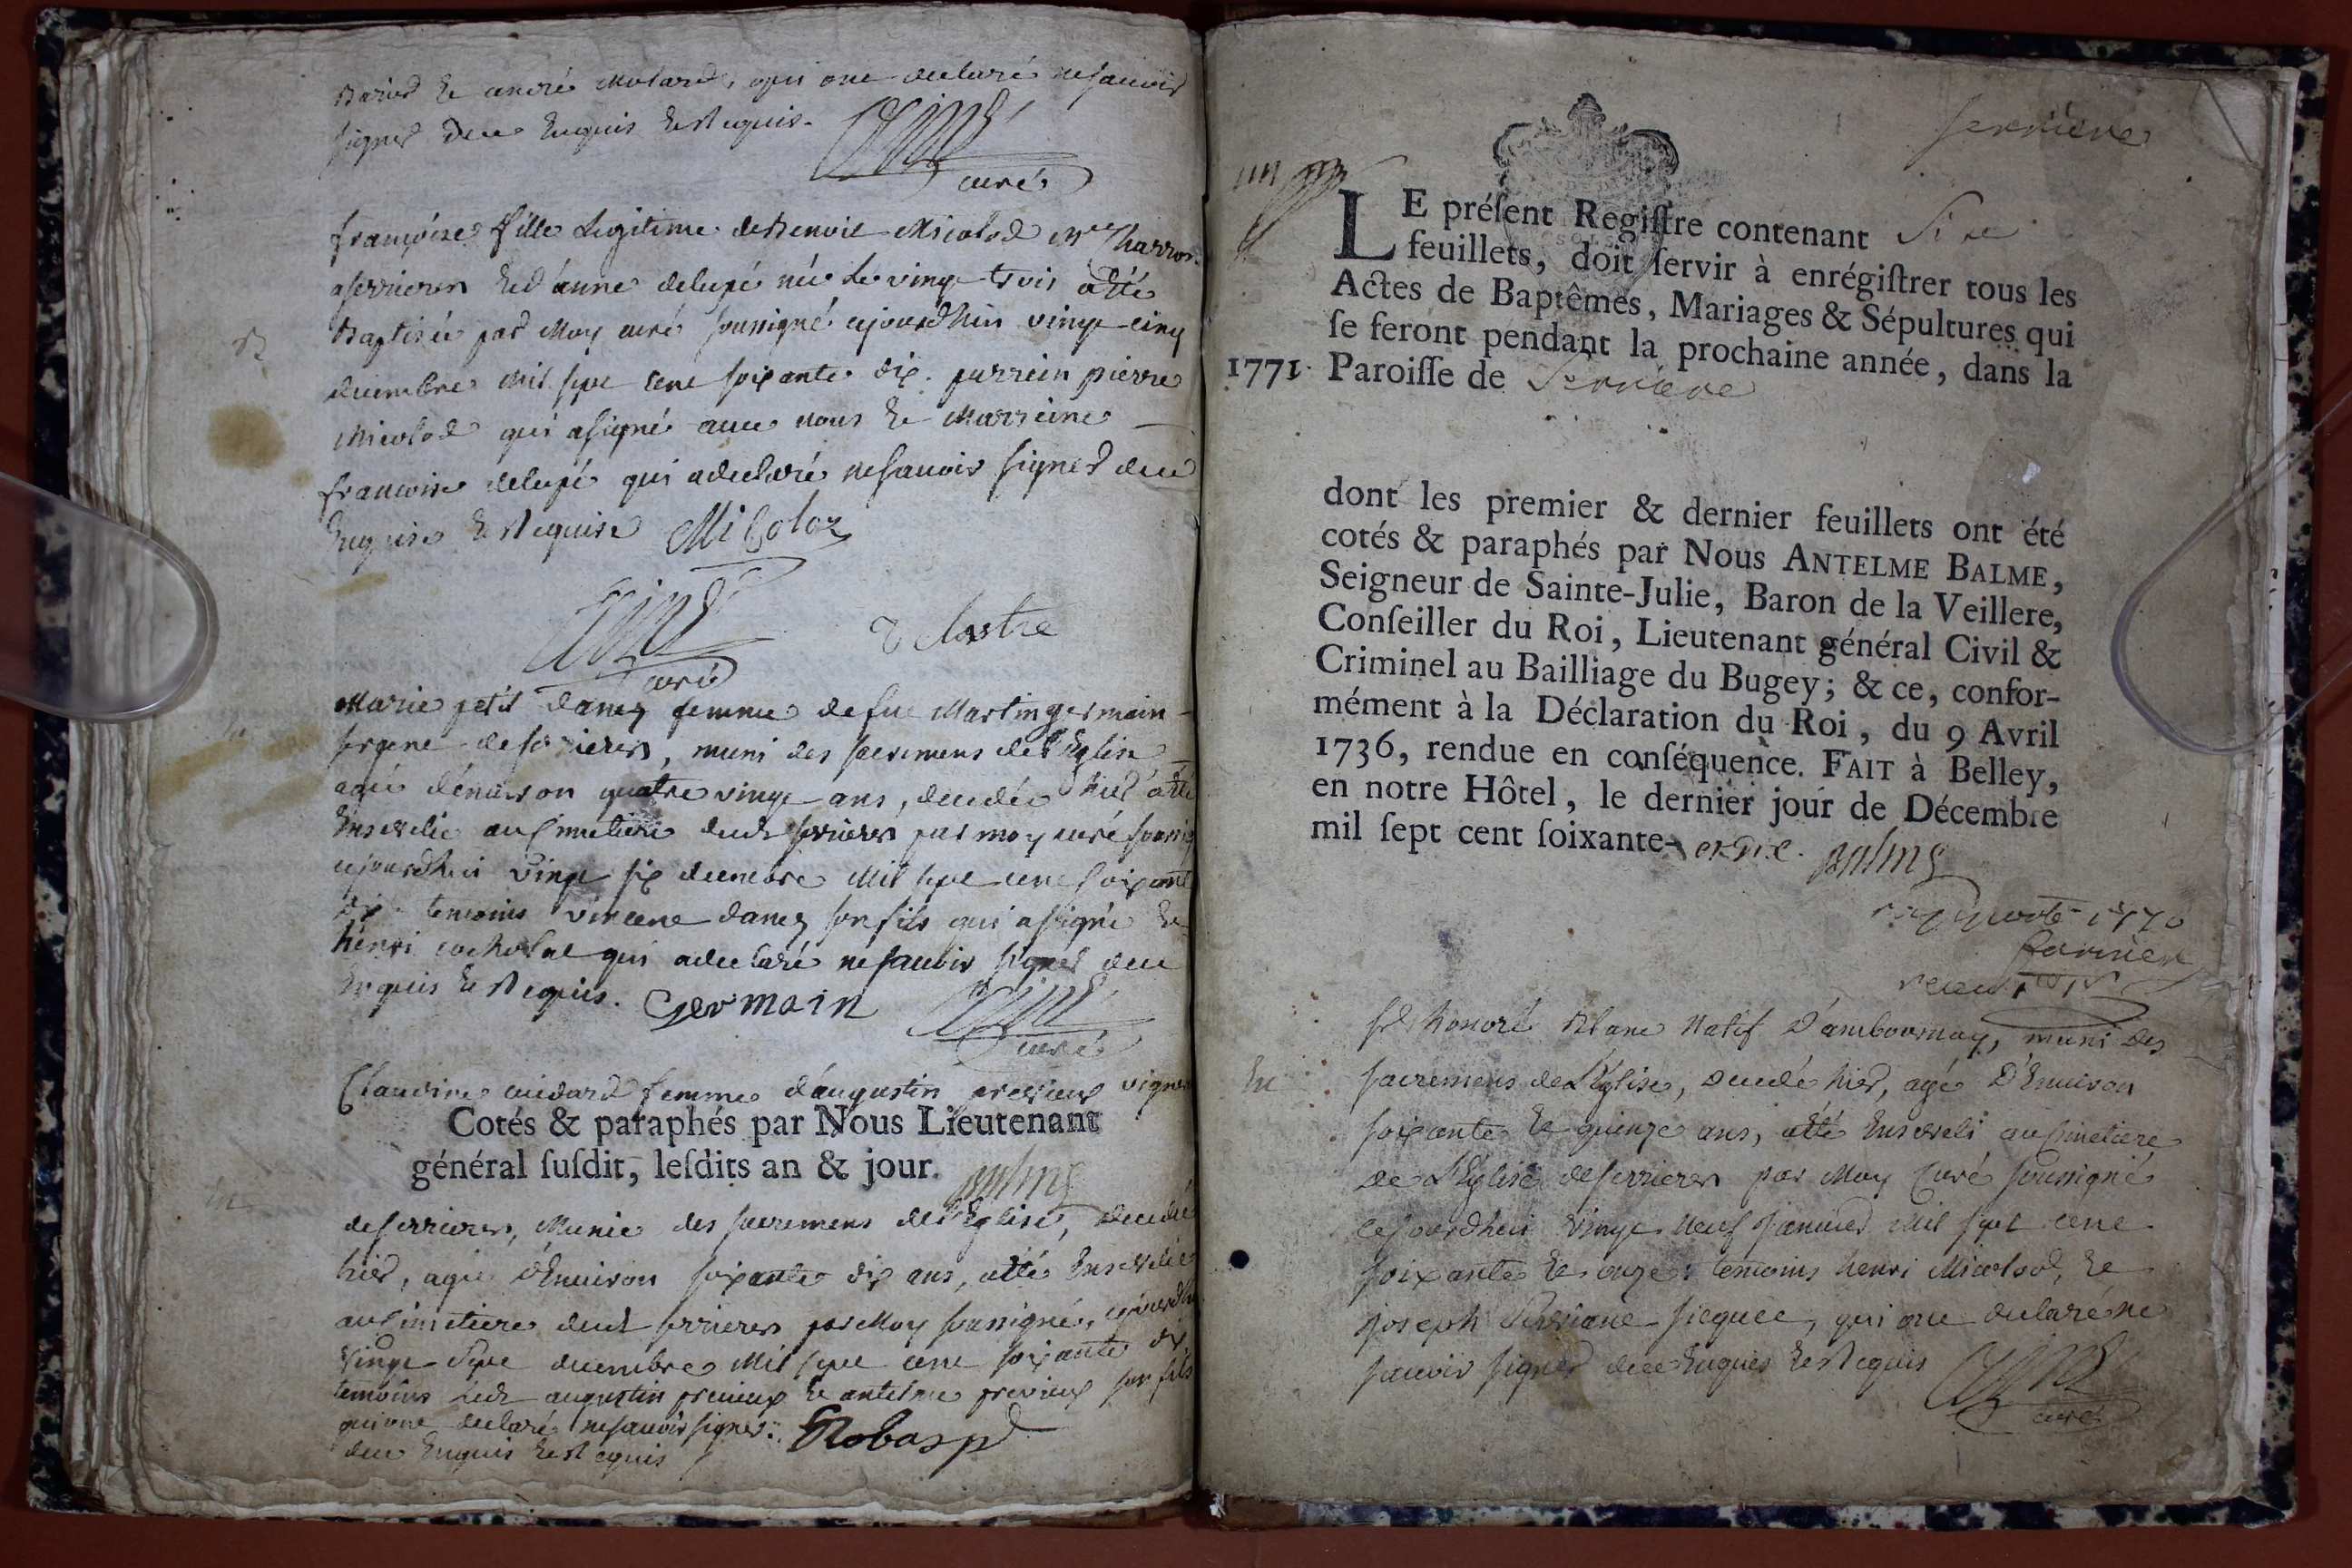 et andré Molard, qui ont declaré ne sauoir
signer de ce Enquis et Requis.
curé
françoise fille Legitime de Benoit Micolod Me Charron
a serrieres et d'anne delupé née Le vingt trois a été
Baptisée par Moy curé soussigné cejourdhui vingt cinq
decembre Mil sept cent soixante dix. parrein pierre
Micolod qui a signé auec nous et Marreine
francoise delupé qui a declaré ne sauoir signer de ce
Enquise et Requise Micoloz
curé
Marie petit dancy femme de feu Martin germain
sergent de serrieres, muni des sacremens de l'Eglise
agée d'enuiron quatre vingt ans, decedée hier a été
Enseuelie au cimetiere dudt serrieres par moy curé soussig
cejourdhui vingt six decembre Mil sept cent soixante
dix temoins vincent dancy son fils qui a signé et
henri qui a declaré ne sauoir signer de ce
Enquis et Requis. Germain
curé
Claudine femme d'augustin precieux vigneron
Cotés & paraphés par Nous Lieutenant
général ſuſdit, leſdits an & jour. Balme
de serrieres, Munie des sacremens de l'Eglise, decedée
hier, agée d'Enuiron soixante dix ans, a été Enseuelie
au cimetiere dudt serrieres par Moy soussigné, cejourdhui
vingt sept decembre Mil sept cent soixante dix
temoins ledt augustin precieux et antelme precieux son fils
qui ont declaré ne sauoir signer
de ce Enquis et Requis
serriere
LE préſent Regiſtre contenant Six
feuillets, doit ſervir à enrégiſtrer tous les
Actes de Baptêmes, Mariages & Sépultures qui
ſe feront pendant la prochaine année, dans la
1771. Paroiſſe de Serriere
dont les premier & dernier feuillets ont été
cotés & paraphés par Nous ANTELME BALME,
Seigneur de Sainte-Julie, Baron de la Veillere,
Conſeiller du Roi, Lieutenant général Civil &
Criminel au Bailliage du Bugey; & ce, confor-
mément à la Déclaration du Roi, du 9 Avril
1736, rendue en conſéquence. FAIT à Belley,
en notre Hôtel, le dernier jour de Décembre
mil ſept cent ſoixante- et dix. Balme
1770
Sr honoré Blanc Natif D'ambournay, muni des
En sacremens de L'Eglise, decedé hier, agé D'Enuiron
soixante et quinze ans, a été Enseueli au cimetiere
de L'Eglise de serrieres par Moy Curé soussigné
cejourdhui vingt neuf januier Mil sept cent
soixante et onze: temoins henri Micolod, et
joseph qui ont declaré ne
sauoir signer de ce Enquis et Requis
curé